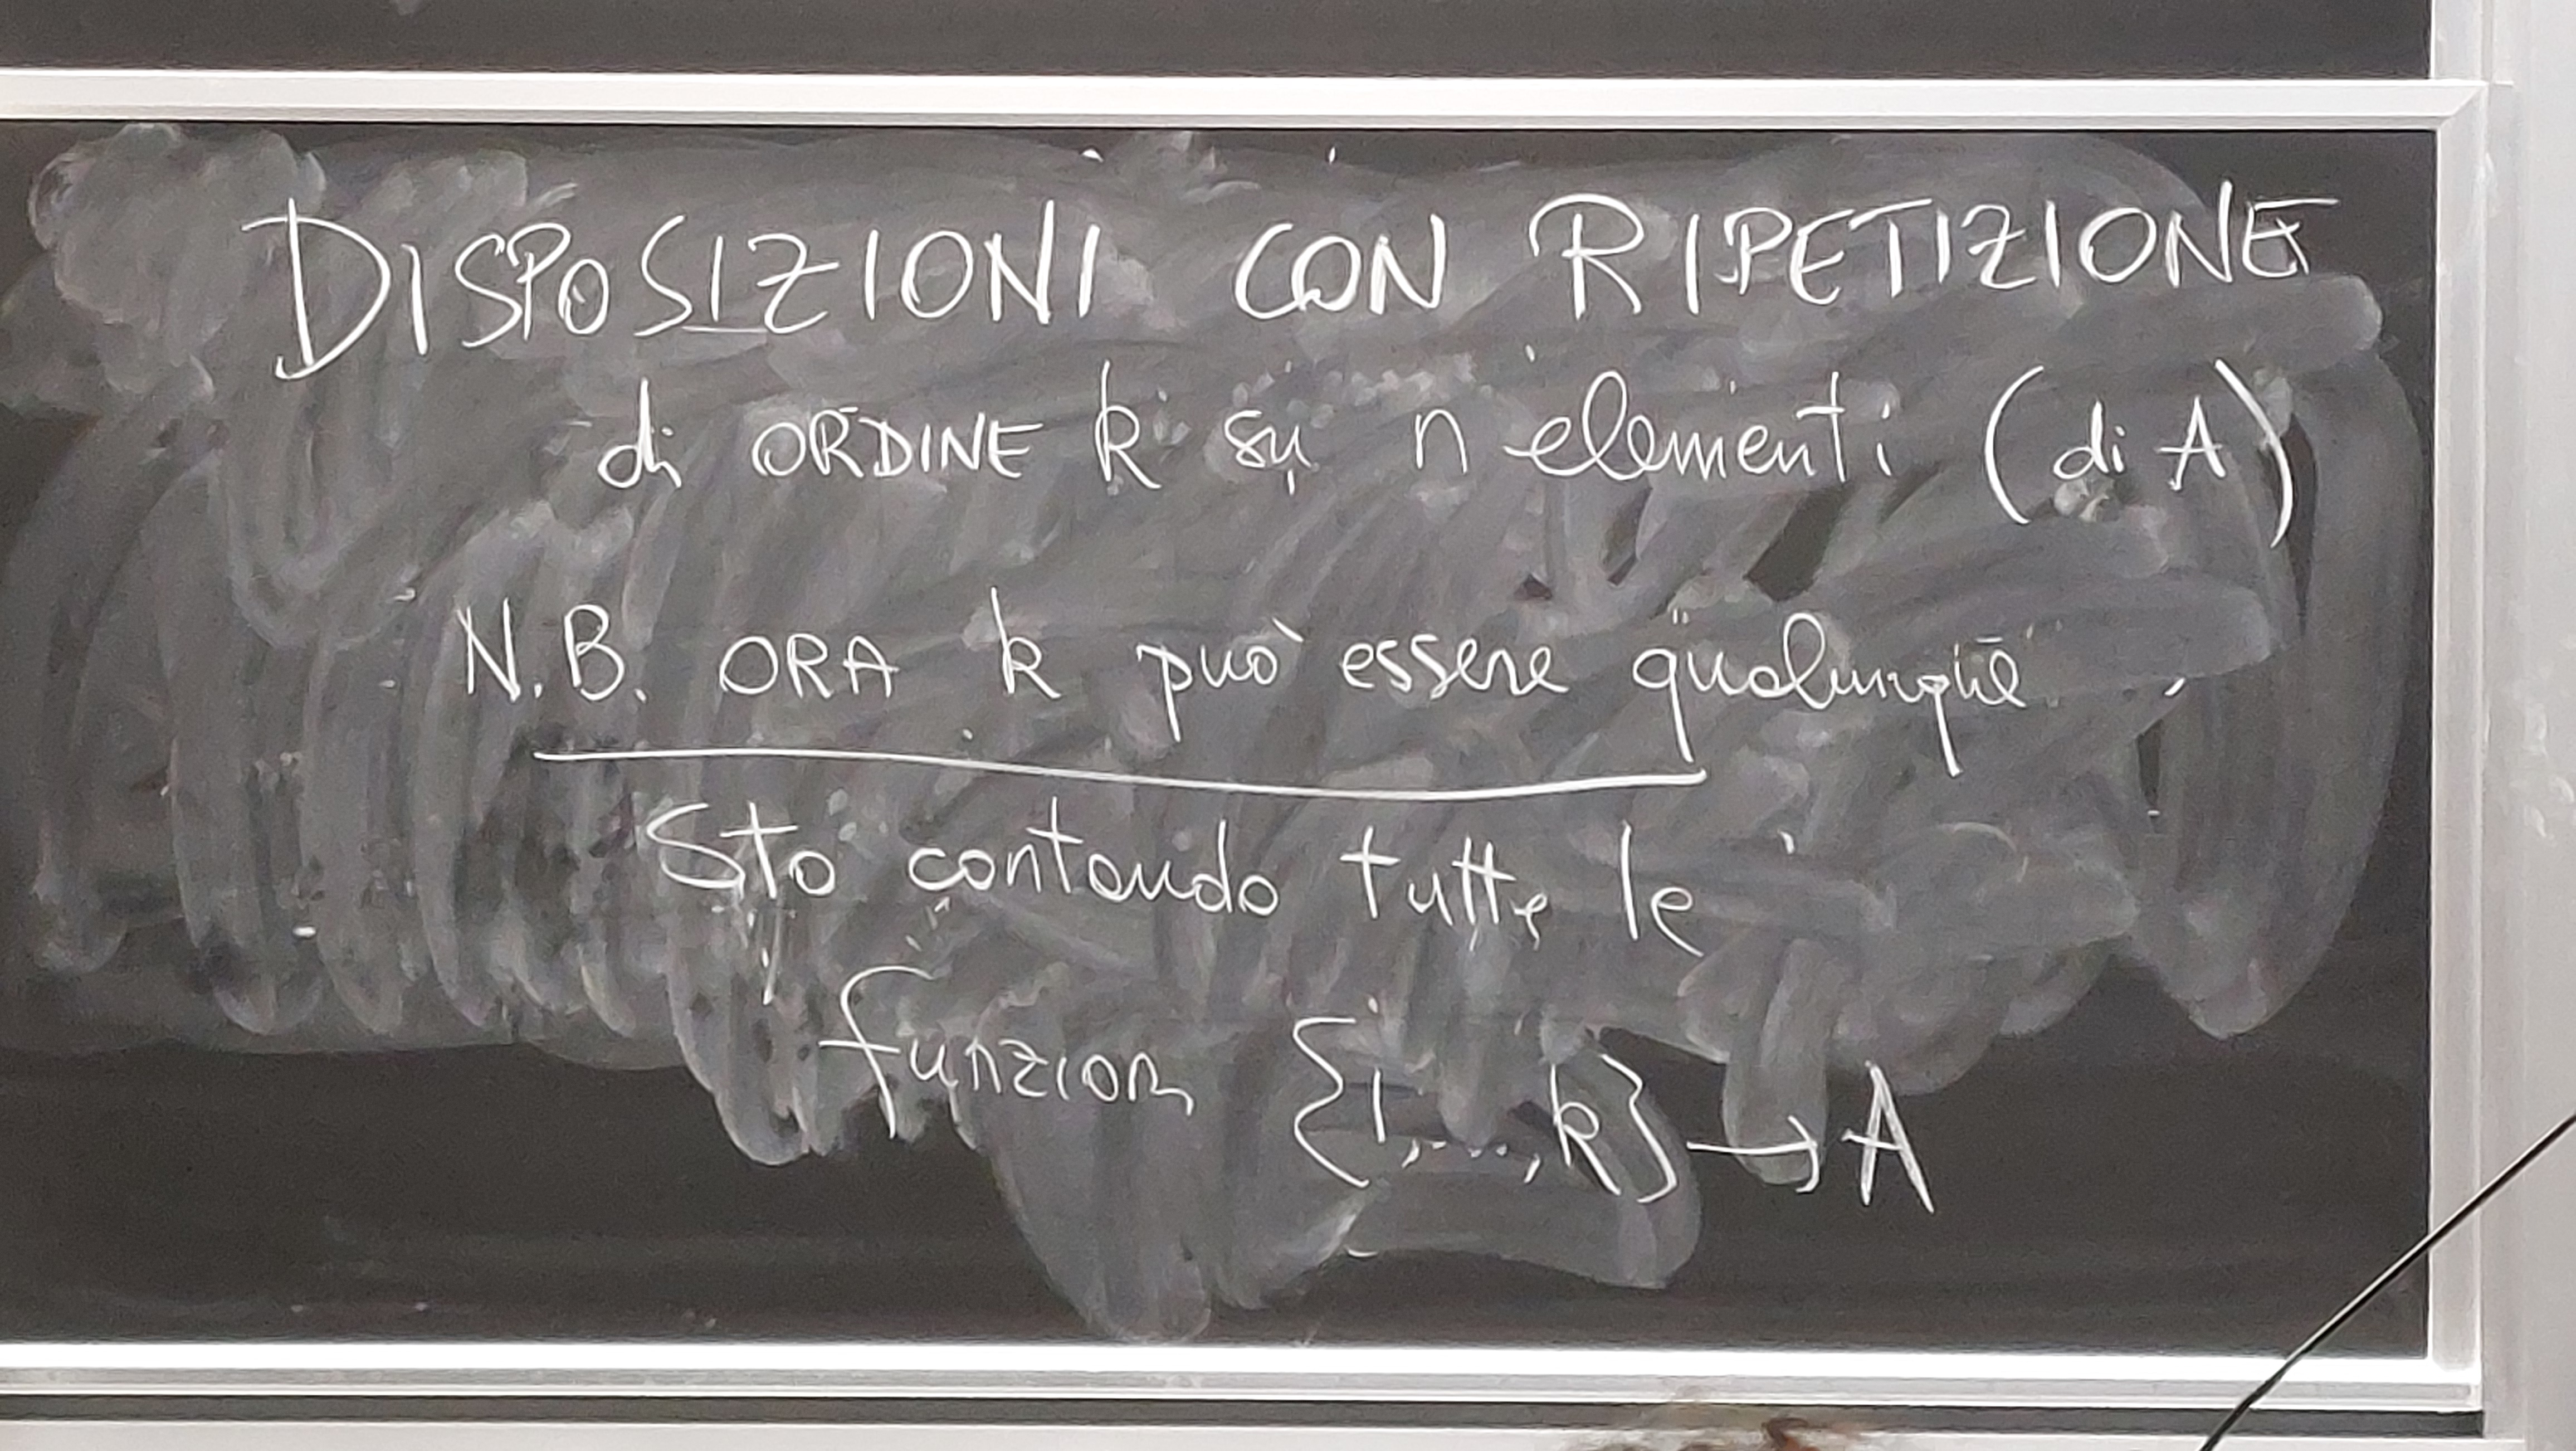 DISPOSIZIONI CON RIPETIZIONE
di ORDINE k su n elementi (di A)
N.B. ORA k può essere qualunque
Sto contando tutte le
funzioni {1,...,k} → A